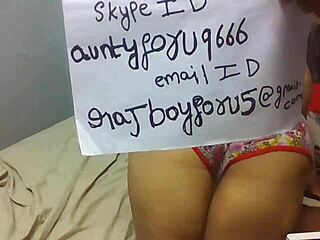 Skype ID
auntyforu9666
email ID
rajboyforu5@gmail.
com